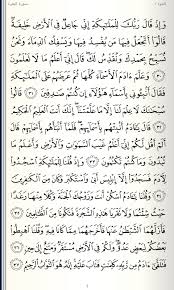 وَإِذْ قَالَ رَبُّكَ لِلْمَلَٰٓئِكَةِ إِنِّى جَاعِلٌ فِى ٱلْأَرْضِ خَلِيفَةً
قَالُوٓا۟ أَتَجْعَلُ فِيهَا مَن يُفْسِدُ فِيهَا وَيَسْفِكُ ٱلدِّمَآءَ وَنَحْنُ
نُسَبِّحُ بِحَمْدِكَ وَنُقَدِّسُ لَكَ قَالَ إِنِّىٓ أَعْلَمُ مَا لَا تَعْلَمُونَ
٣٠ وَعَلَّمَ ءَادَمَ ٱلْأَسْمَآءَ كُلَّهَا ثُمَّ عَرَضَهُمْ عَلَى ٱلْمَلَٰٓئِكَةِ
فَقَالَ أَنۢبِـُٔونِى بِأَسْمَآءِ هَٰٓؤُلَآءِ إِن كُنتُمْ صَٰدِقِينَ ٣١ قَالُوا۟
سُبْحَٰنَكَ لَا عِلْمَ لَنَآ إِلَّا مَا عَلَّمْتَنَآ إِنَّكَ أَنتَ ٱلْعَلِيمُ ٱلْحَكِيمُ
٣٢ قَالَ يَٰٓـَٔادَمُ أَنۢبِئْهُم بِأَسْمَآئِهِمْ فَلَمَّآ أَنۢبَأَهُم بِأَسْمَآئِهِمْ قَالَ
أَلَمْ أَقُل لَّكُمْ إِنِّىٓ أَعْلَمُ غَيْبَ ٱلسَّمَٰوَٰتِ وَٱلْأَرْضِ وَأَعْلَمُ مَا
تُبْدُونَ وَمَا كُنتُمْ تَكْتُمُونَ ٣٣ وَإِذْ قُلْنَا لِلْمَلَٰٓئِكَةِ ٱسْجُدُوا۟
لِـَٔادَمَ فَسَجَدُوٓا۟ إِلَّآ إِبْلِيسَ أَبَىٰ وَٱسْتَكْبَرَ وَكَانَ مِنَ ٱلْكَٰفِرِينَ
٣٤ وَقُلْنَا يَٰٓـَٔادَمُ ٱسْكُنْ أَنتَ وَزَوْجُكَ ٱلْجَنَّةَ وَكُلَا مِنْهَا رَغَدًا
حَيْثُ شِئْتُمَا وَلَا تَقْرَبَا هَٰذِهِ ٱلشَّجَرَةَ فَتَكُونَا مِنَ ٱلظَّٰلِمِينَ
٣٥ فَأَزَلَّهُمَا ٱلشَّيْطَٰنُ عَنْهَا فَأَخْرَجَهُمَا مِمَّا كَانَا فِيهِ وَقُلْنَا ٱهْبِطُوا۟
بَعْضُكُمْ لِبَعْضٍ عَدُوٌّ وَلَكُمْ فِى ٱلْأَرْضِ مُسْتَقَرٌّ وَمَتَٰعٌ إِلَىٰ حِينٍ ٣٦
فَتَلَقَّىٰٓ ءَادَمُ مِن رَّبِّهِۦ كَلِمَٰتٍ فَتَابَ عَلَيْهِ إِنَّهُۥ هُوَ ٱلتَّوَّابُ ٱلرَّحِيمُ ٣٧